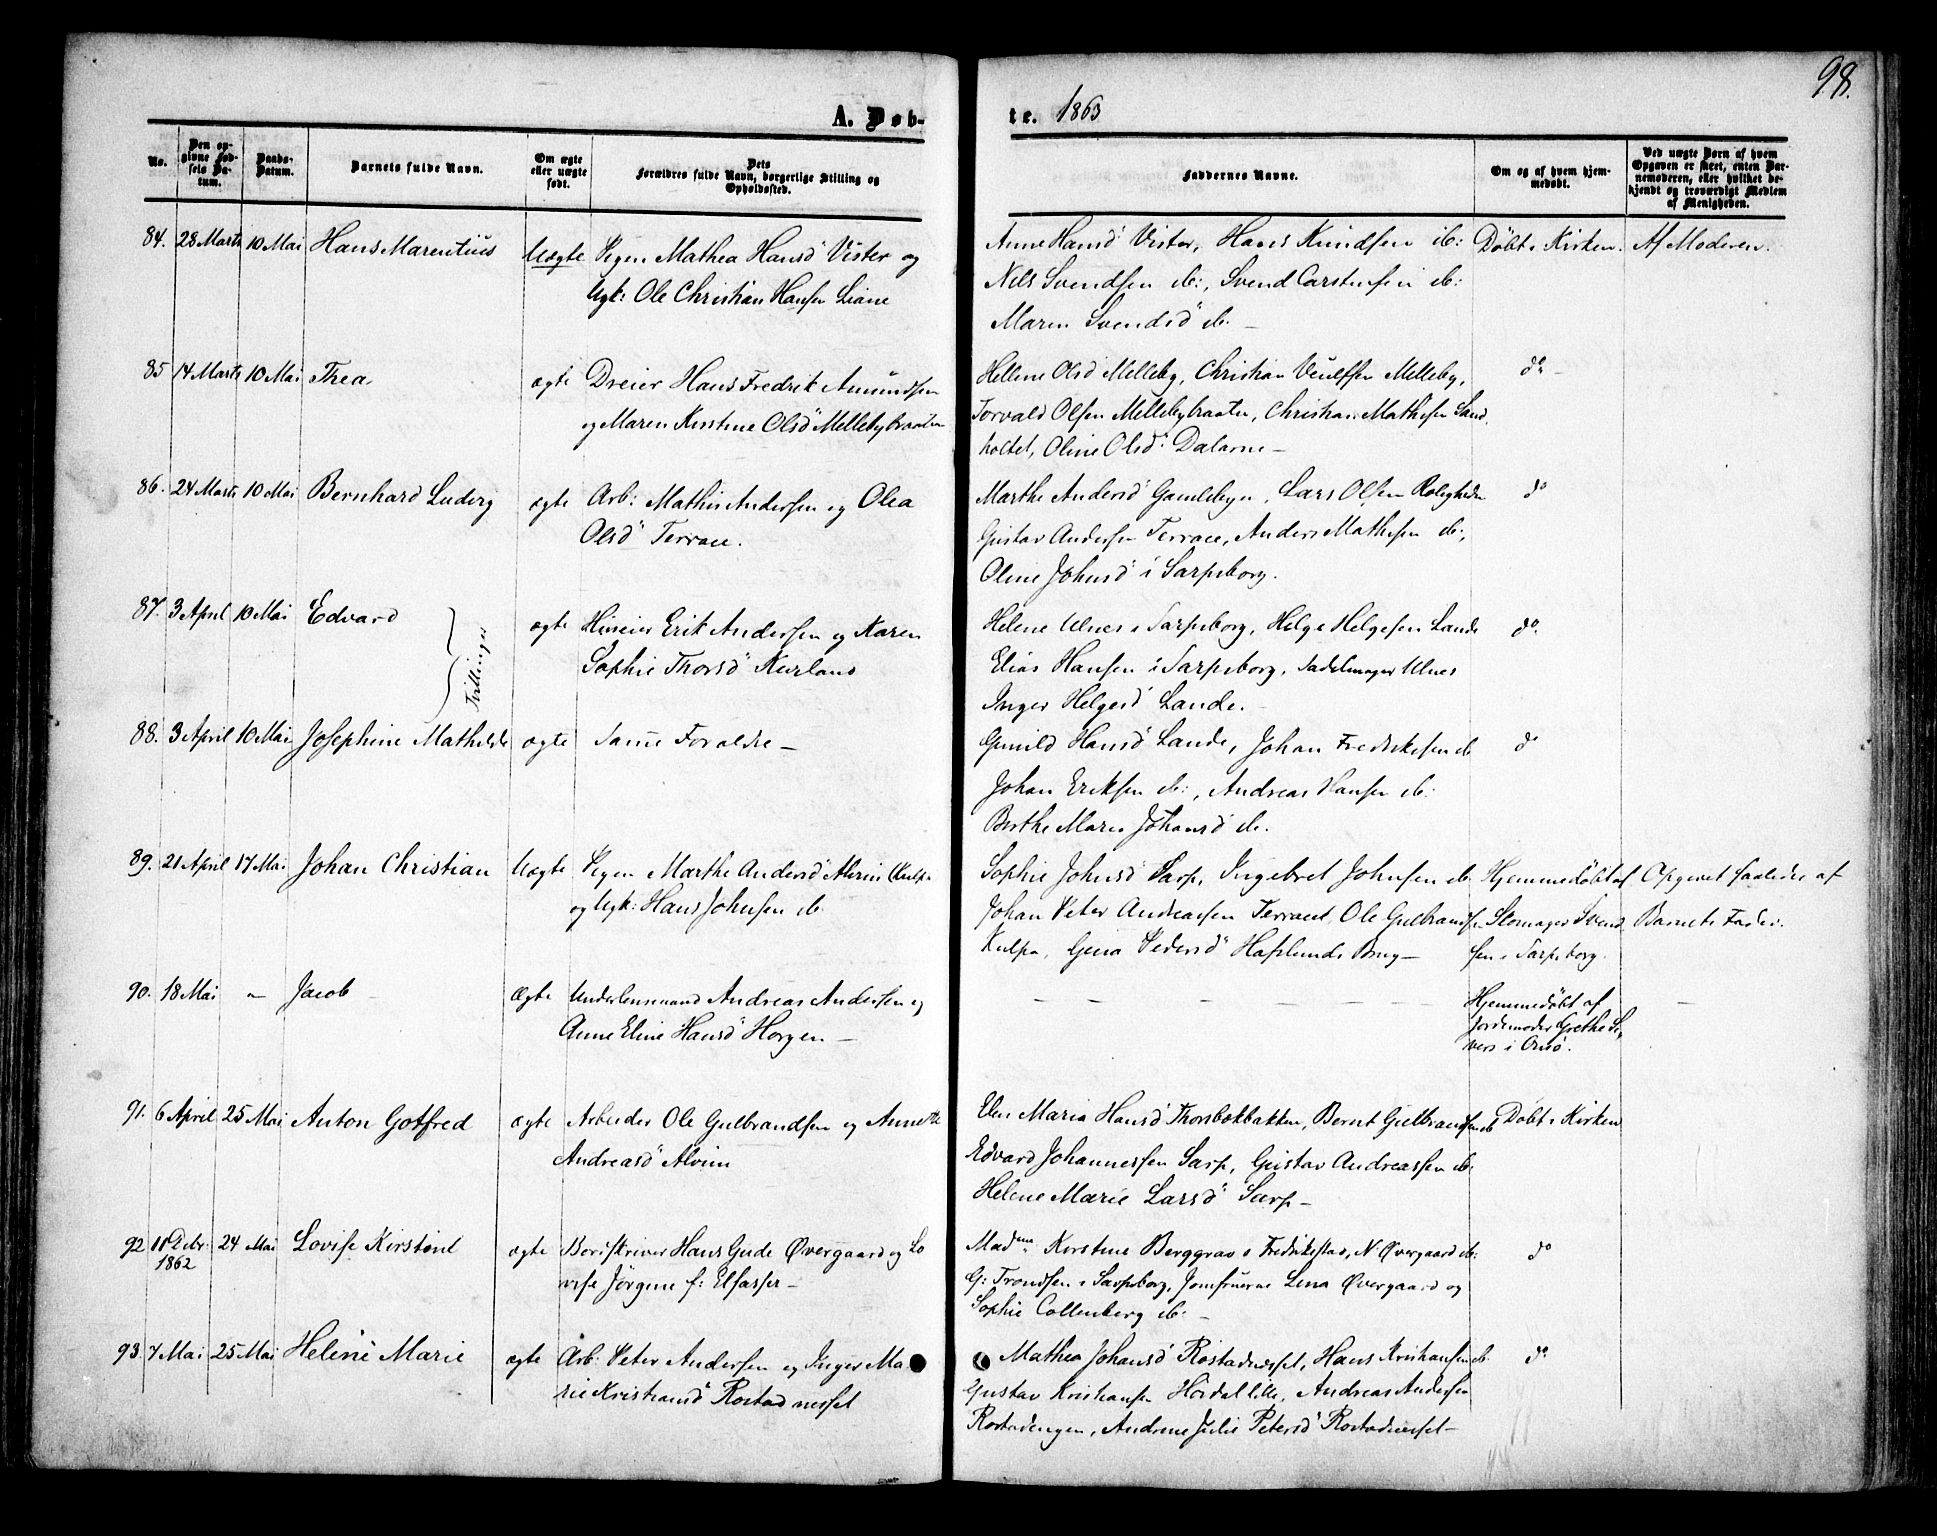 98.
A. Døbte. 1863
No.
Den opgivne Fødsels Datum.
Daabs-Datum.
Barnets fulde Navn.
Om ægte eller uægte født.
Dets Forældres fulde Navn, borgerlige Stilling og Opholdssted.
Faddernes Navne.
Om og af hvem hjemmedøbt.
Ved uægte Børn af hvem Opgaven er skeet, enten Barnemoderen, eller hvilket bekjendt og troværdigt Medlem af Menigheden.
84. 28 Marts 10 Mai Hans Marentius Uægte Pigen Mathea Hansd Vister og
Ugk: Ole Christian Hansen Liane
Anne Hansd Vister, Hans Knudsen ib: Døbt i Kirken. Af Moderen.
Nils Svendsen ib:, Svend Carstensen ib:
Maren Svendsd ib. –
85 14 Marts 10 Mai Thea ægte Dreier Hans Fredrik Amundsen
og Maren Kirstine Olsd Mellebybraaten
Hellene Olsd Melleby, Christian Melleby, do –
Torvald Olsen Mellebybraaten, Christian Mathisen Sand
holtet, Oline Olsd Dalarne –
86. 24 Marts 10 Mai Bernhard Ludvig ægte Arb: Mathis Andersen og Olea
Olsd Terrace.
Marthe Andersd Gamlebyen, Lars Olsen Roligheden do
Gustav Andersen Terrace, Anders Mathisen ib:,
Oline Johnsd i Sarpsborg.
87. 3 April 10 Mai Edvard ægte Huseier Erik Andersen og Karen
Sophie Thorsd Kurland
Tvillinger
Helene Ulnes i Sarpsborg, Helge Helgesen Lande do.
Elias Hansen i Sarpsborg, Sadelmager Ulnes
Inger Helgesd Lande. –
88. 3 April 10 Mai Josephine Mathilde ægte Samme Forældre –
Gunild Hansd Lande, Johan Fredriksen ib do
Johan Eriksen ib:, Andreas Hansen ib:
Berthe Marie Johansd ib.
89. 21 April 17 Mai Johan Christian Uægte Pigen Marthe Andersd Alvim Kulpe
og Ugk: Hans Johnsen ib.
Sophie Johnsd Sarp, Ingebret Johnsen ib Hjemmedøbt af Opgivet saaledes af
Johan Peter Andreassen Terracet, Ole Gulbrandsen Skomager Svend Barnets Fader.
Kulpe, Gina Pedersd Hafslunds Brug – sen i Sarpsborg.
90. 18 Mai – Jacob – Ægte Underlensmand Andreas Andersen og
Anne Eline Hansd Horgen –
Hjemmedøbt af
Jordemoder Grethe Si
vers i Onsø.
91. 6 April 25 Mai Anton Gotfred ægte Arbeider Ole Gulbrandsen og Annette
Andreasd Alvim
Elen Maria Hansd Thorsbekbakken, Bernt Gulbrandsen ib Døbt i Kirken
Edvard Johannessen Sarp, Gustav Andreassen ib.
Helene Marie Larsd Sarp –
92 11 Debr: 24 Mai Lovise Kirstine ægte Bordskriver Hans Gude Øvergaard og Lo
1862
vise Jørgine f: Elfasser –
Madme Kirstine Berggrav i Fredrikstad, N. Øvergaard ib: do
G: Trondsen i Sarpsborg, Jomfruerne Lena Øvergaard og
Sophie Collenberg ib. –
93. 7 Mai 25 Mai Helene Marie ægte Arb: Peter Andersen og Inger Ma
rie Kristiansd Rostadnesset
Mathea Johansd Rostadnesset, Hans Kristiansen ib. do
Gustav Kristiansen Hordal lille, Andreas Andersen
Rostadengen, Andrine Julie Petersd Rostadnesset –